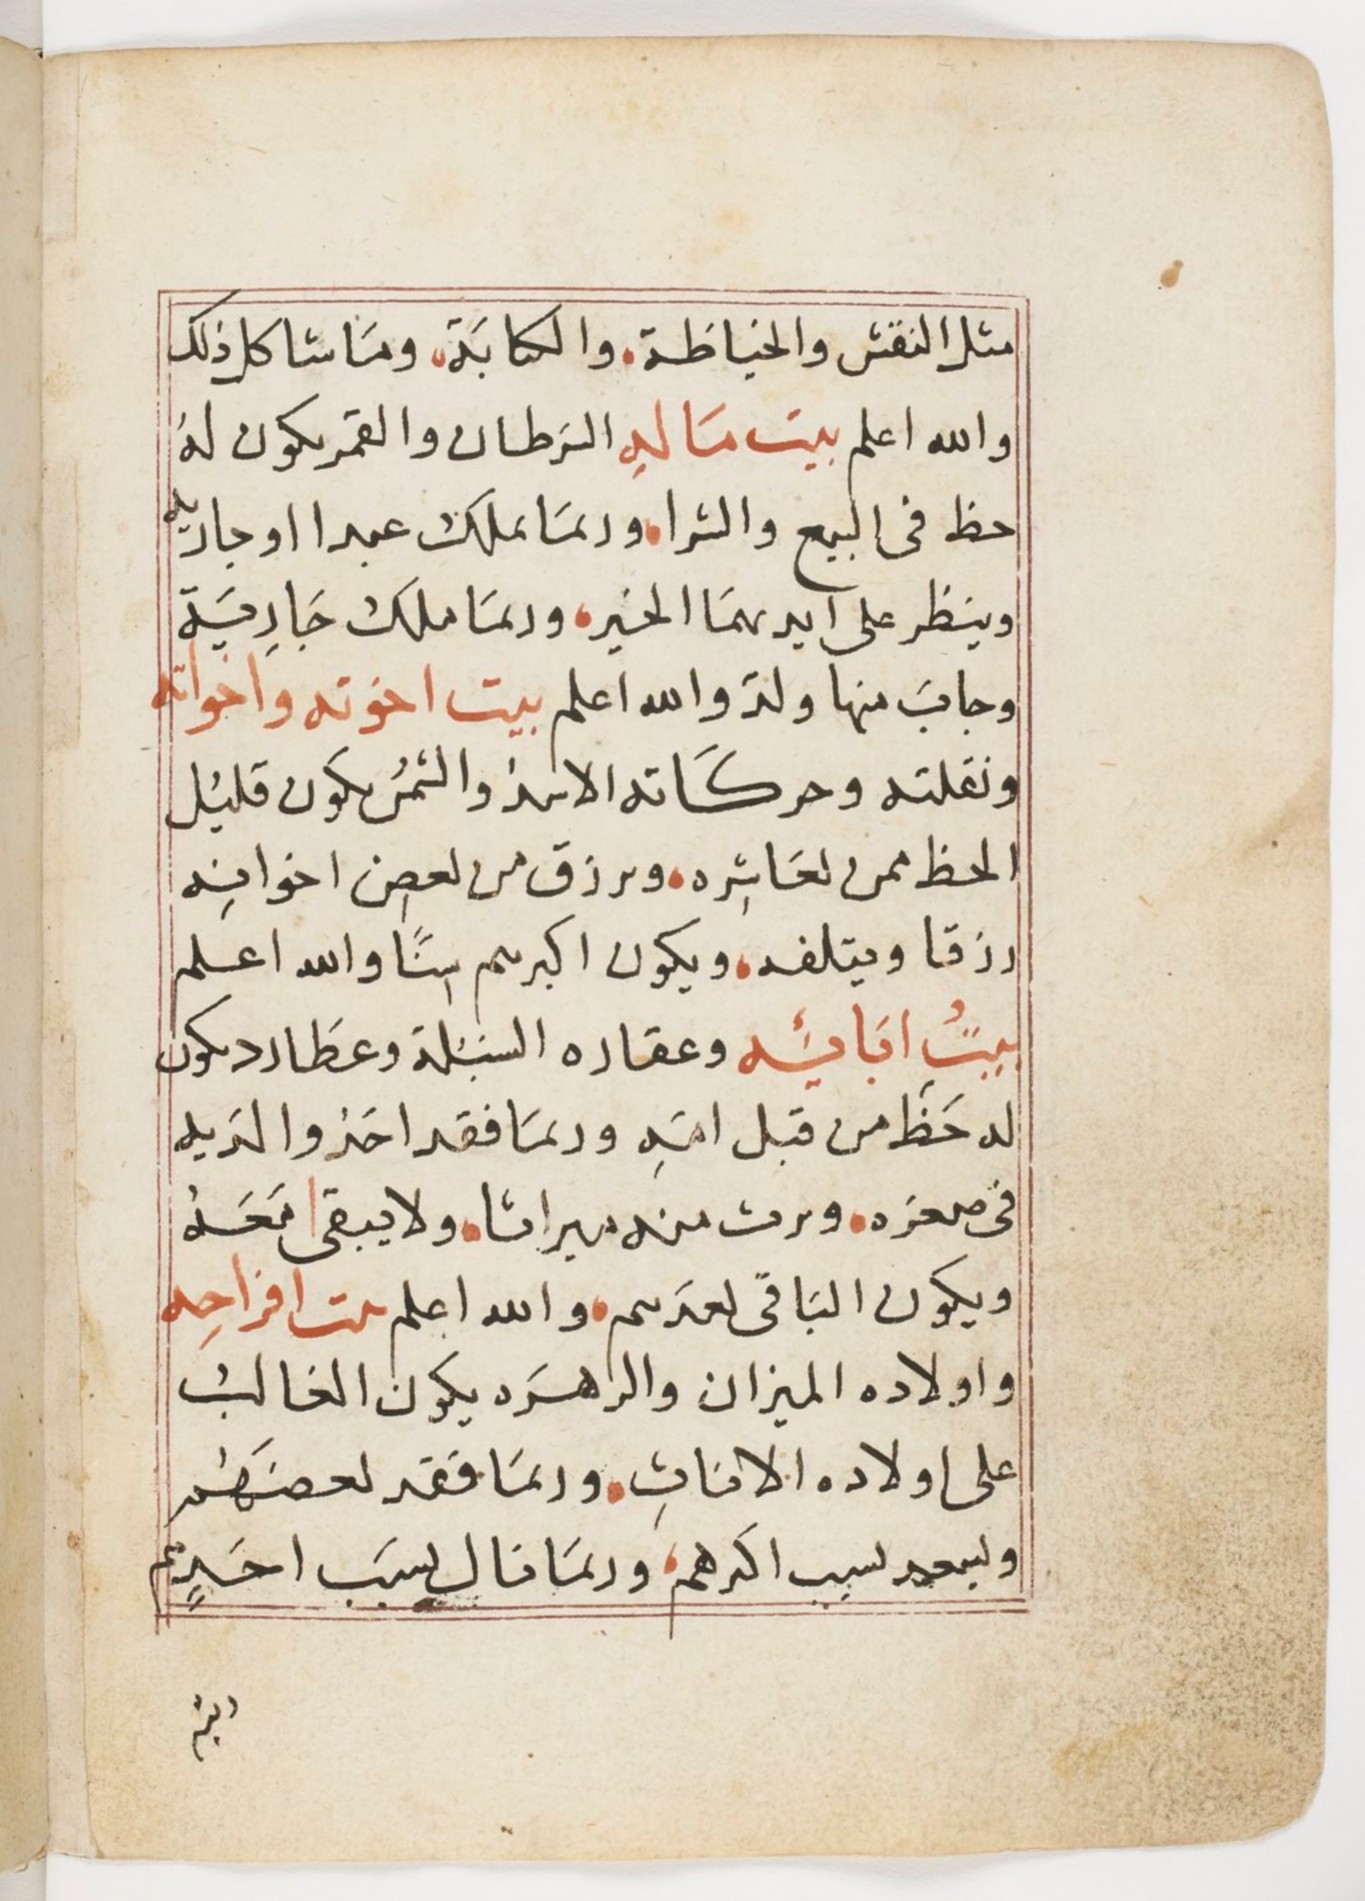 مثل النقش والخياطة، والكتابة، وما شاكل ذلك
والله اعلم بيت ماله السرطان والقمر يكون له
حظ فى البيع والشرا، وربما يملك عبدا او جاريه
وينظر على ايديهما الخير، وربما ملك جارية
وجاب منها ولد والله اعلم بيت اخوته واخواته
ونقلته وحركاته الاسد والشمس يكون قليل
الحظ ممن يعاشره، ويرزق من بعض اخوانه
رزقا ويتلفه، ويكون اكبرهم سنًا والله اعلم
بيت ابائه وعقاره السنبلة وعطارد يكون
له حظ من قبل امه وربما فقد احد والديه
فى صغره، ويرث منه ميراثا، ولا يبقى معه
ويكون الباقى بعدهم، والله اعلم بيت افراحه
واولاده الميزان والزهره يكون الغالب
على اولاده الاناث، وربما فقد بعضهم
ويسعد بسبب اكبرهم، وربما نال بسبب احدهم